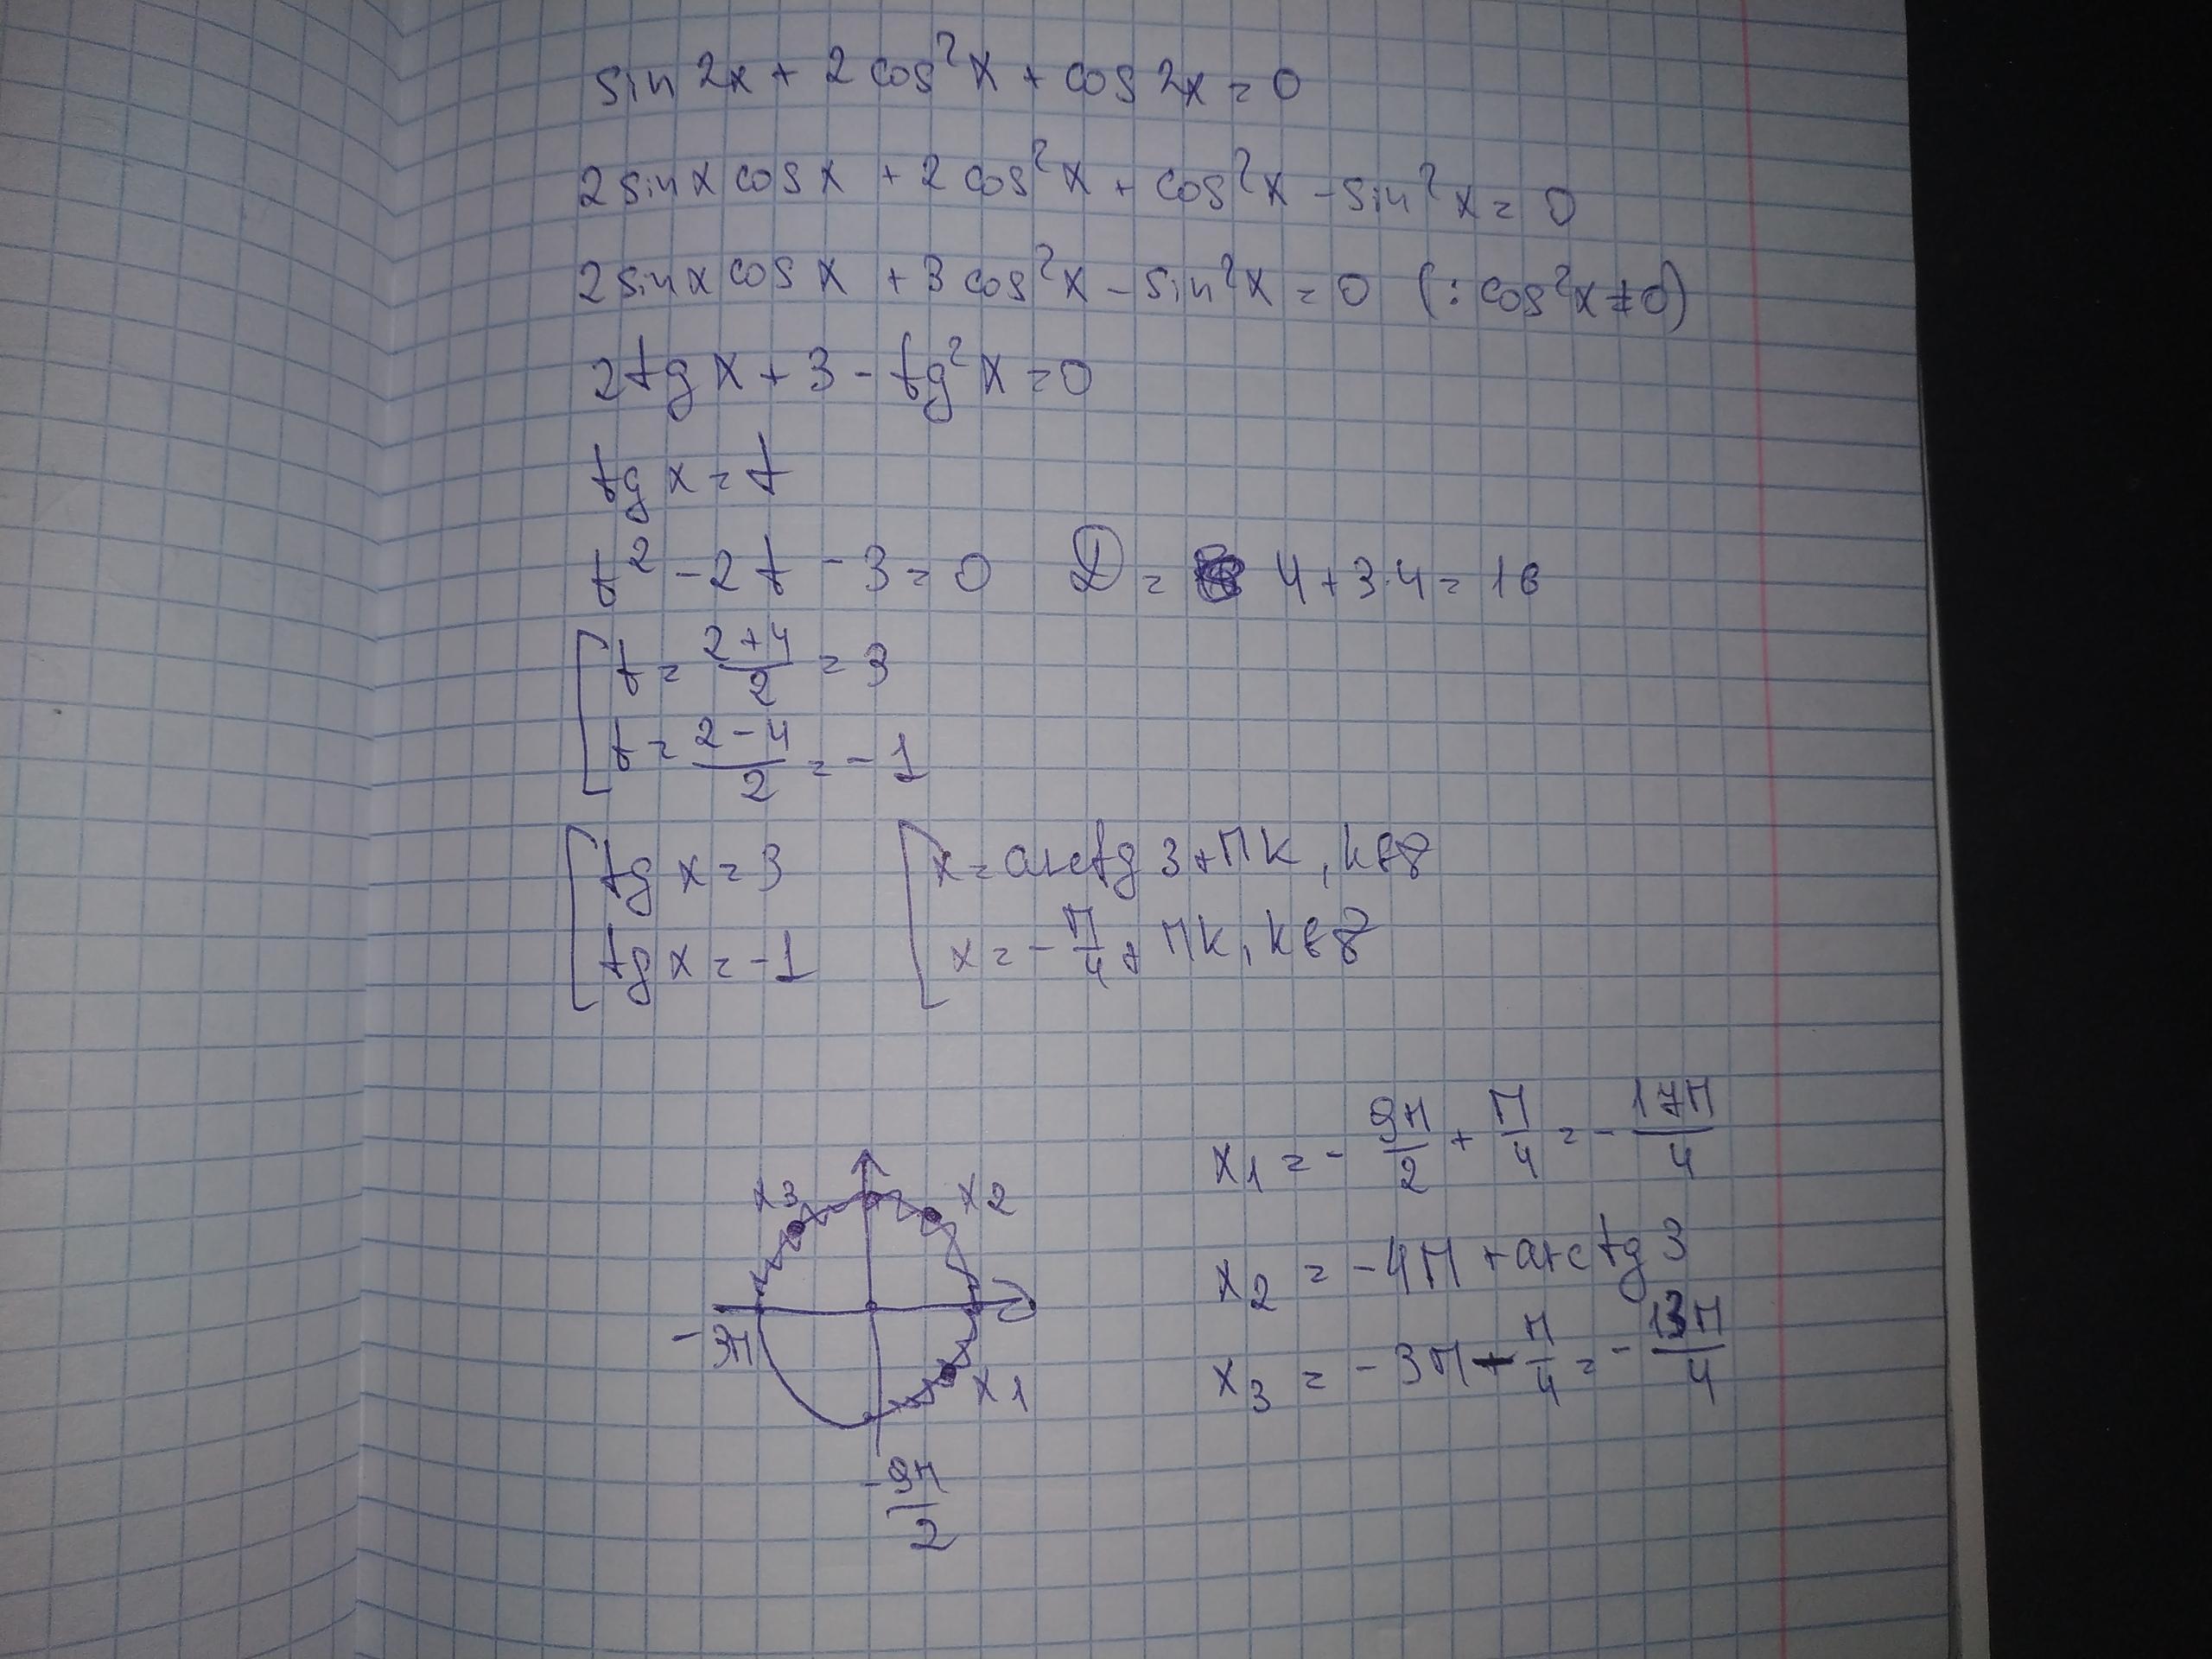 sin 2x + 2 cos²x + cos 2x = 0
2 sin x cos x + 2 cos²x + cos²x - sin²x = 0
2 sin x cos x + 3 cos²x - sin²x = 0 (: cos²x ≠ 0)
2 tg x + 3 - tg²x = 0
tg x = t
t² - 2t - 3 = 0 D = 4 + 3·4 = 16
[ t = (2+4)/2 = 3
t = (2-4)/2 = -1
[ tg x = 3 [ x = arctg 3 + πk, k∈Z
tg x = -1 x = -π/4 + πk, k∈Z
x₁ = -9π/2 + π/4 = -17π/4
x3 x2
x₂ = -4π + arctg 3
-3π
x₃ = -3π - π/4 = -13π/4
x1
-9π/2